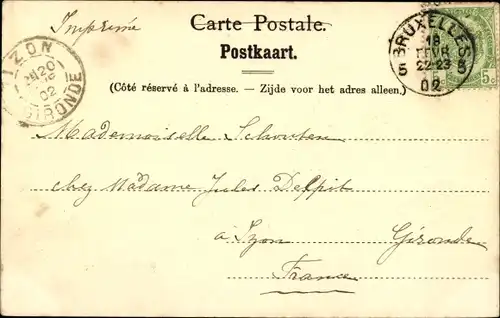 Imprimé
Carte Postale.
Postkaart.
(Côté réservé à l'adresse. — Zijde voor het adres alleen.)
IZON
20
02
GIRONDE
BRUXELLES
18
FEVR
5 22-23 5
02
5c
Mademoiselle Schouten
chez Madame Jules Delpit
à Izon Gironde
France